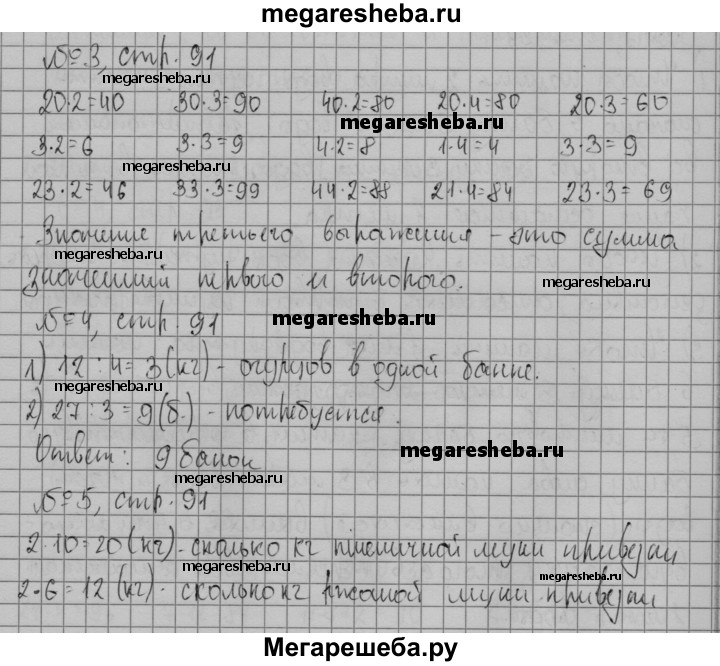 megaresheba.ru
№3, стр. 91
megaresheba.ru
20·2=40 30·3=90 40·2=80 20·4=80 20·3=60
megaresheba.ru
3·2=6 3·3=9 4·2=8 1·4=4 3·3=9
megaresheba.ru
23·2=46 33·3=99 44·2=88 21·4=84 23·3=69
Значение третьего выражения - это сумма
значений первого и второго.
megaresheba.ru
№4, стр. 91
megaresheba.ru
1) 12:4=3(кг) - огурцов в одной банке.
megaresheba.ru
2) 27:3=9(б.) - потребуется.
megaresheba.ru
Ответ: 9 банок
megaresheba.ru
№5, стр. 91
2·10=20(кг) - сколько кг пшеничной муки привезли
megaresheba.ru
megaresheba.ru
2·6=12(кг) - сколько кг ржаной муки привезли
Мегарешеба.ру